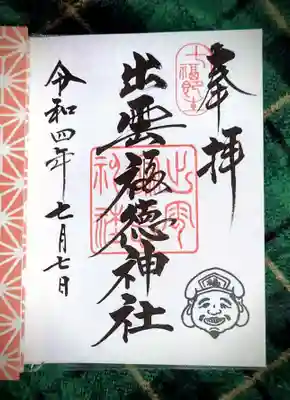 奉拝
出雲福徳神社
令和四年七月七日